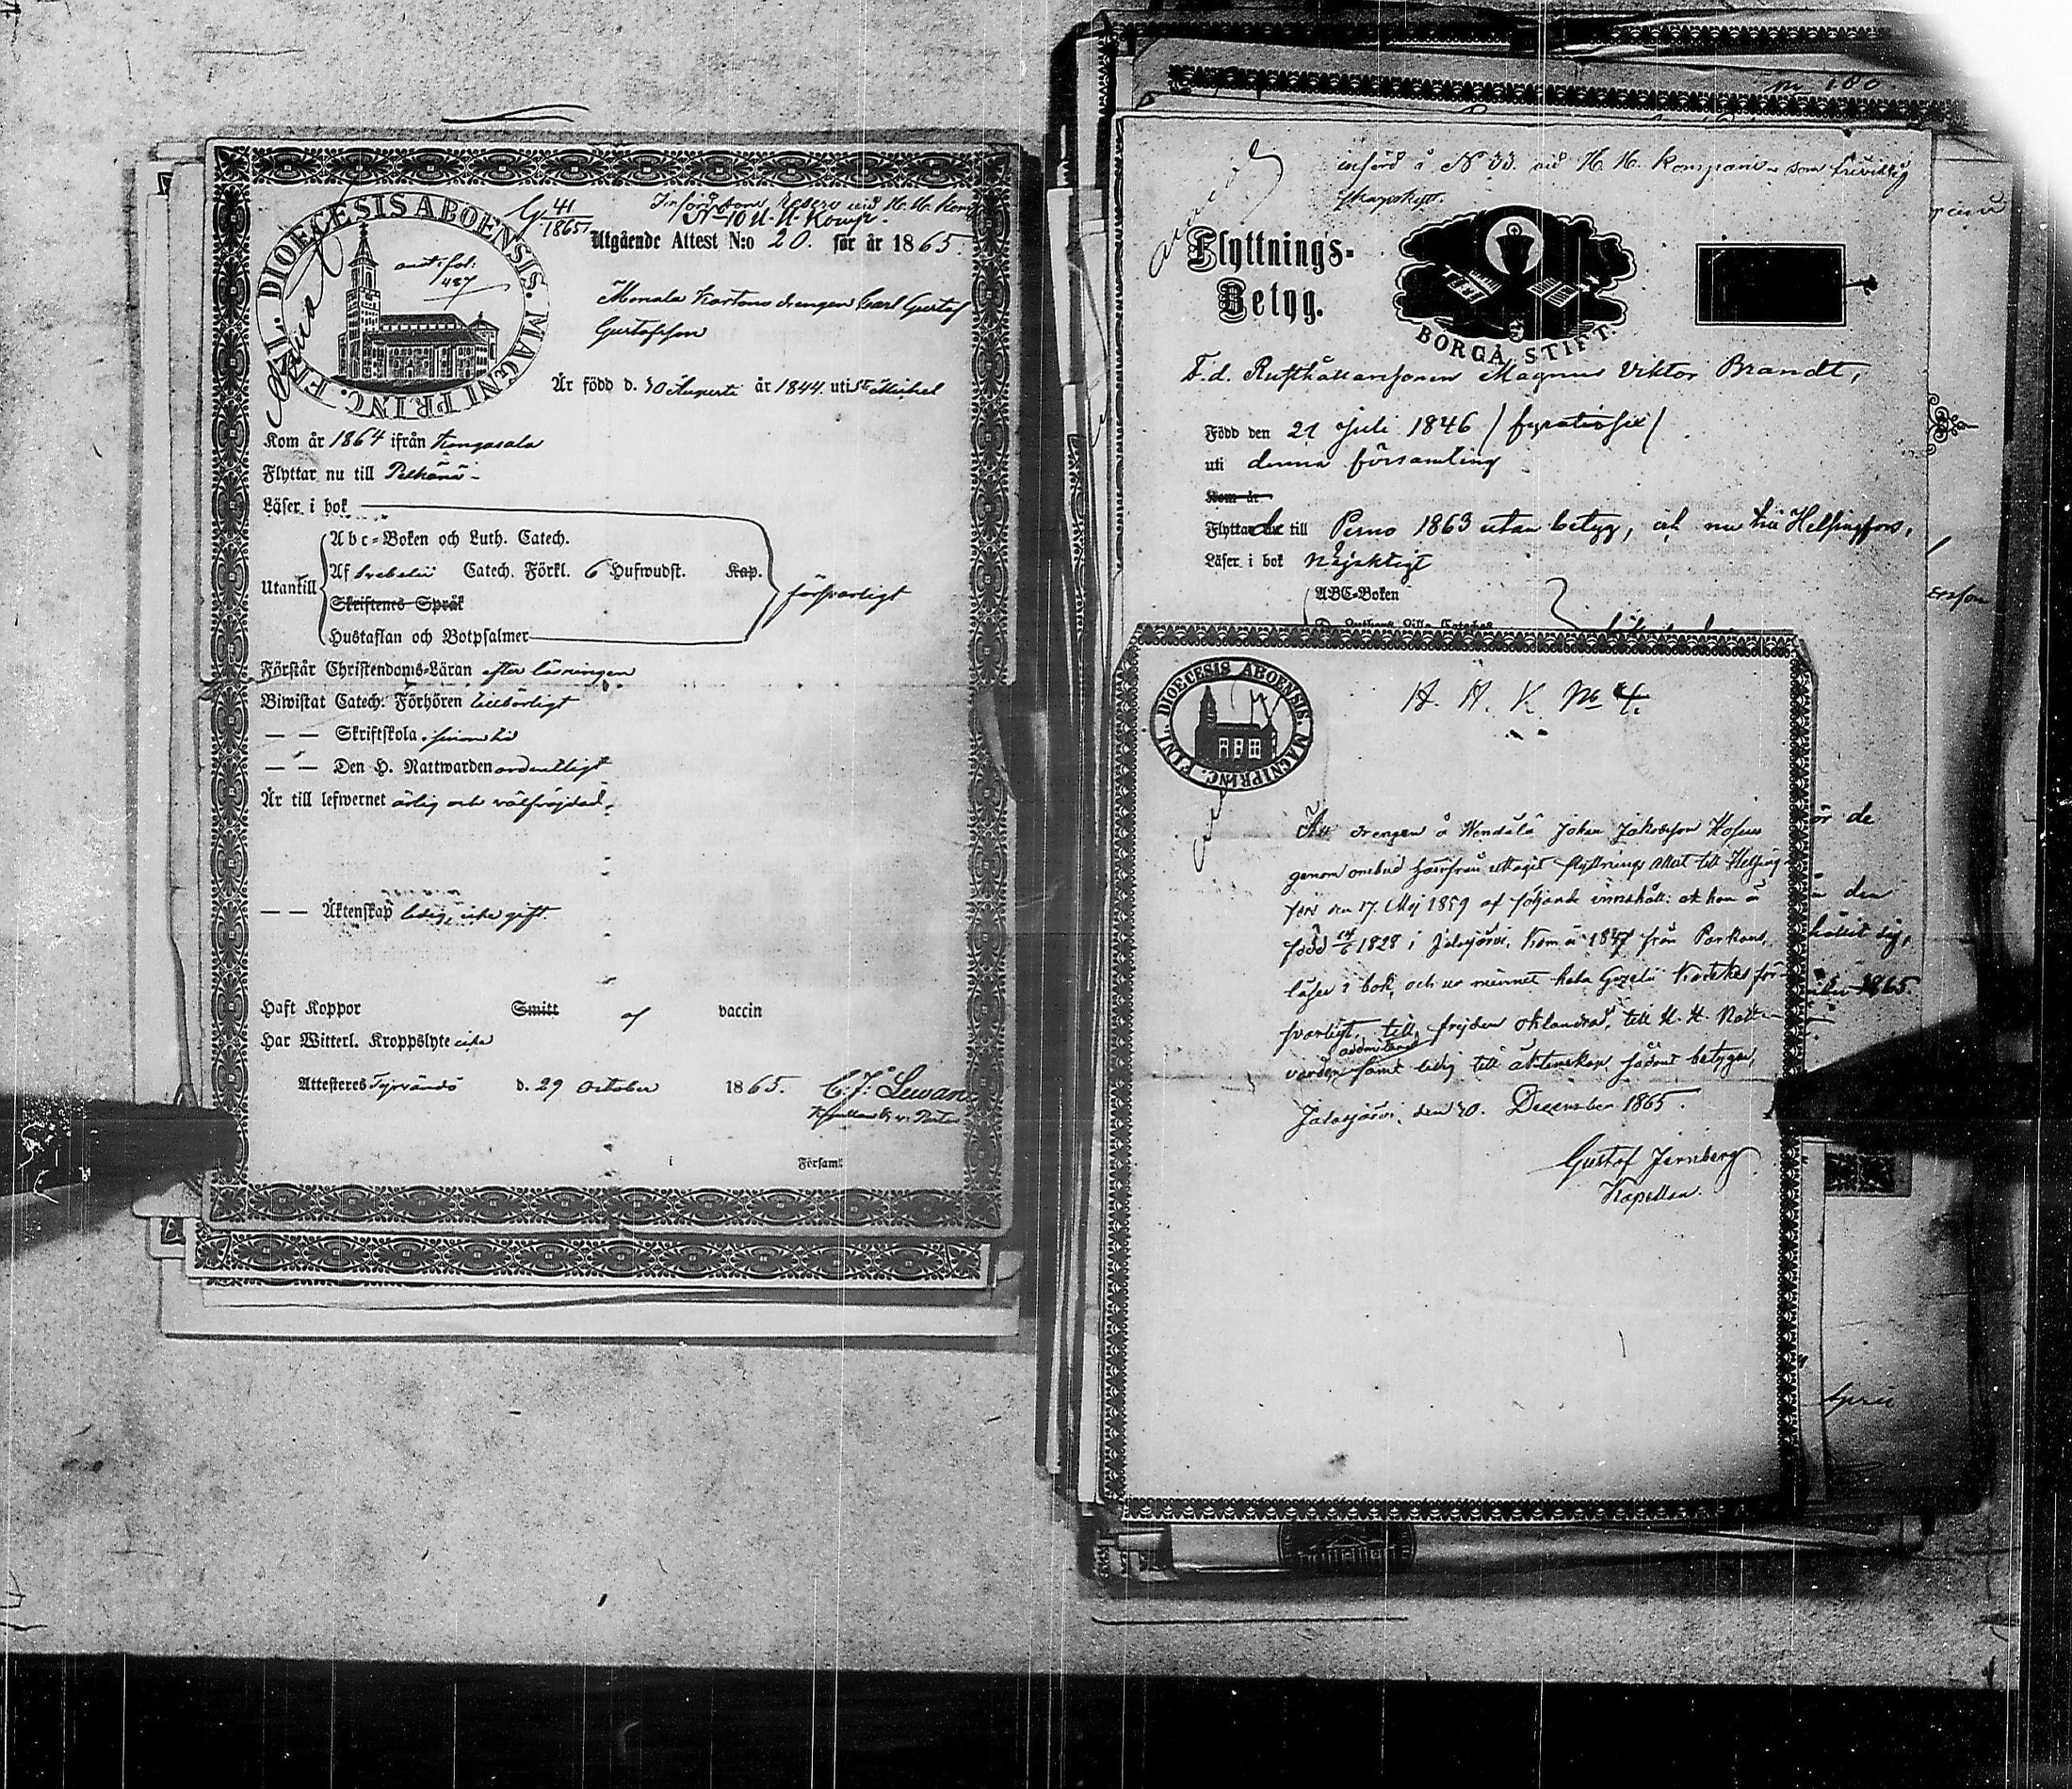 DIOECESIS ABOENSIS. MAGNI PRINC. FINL.
G. 41
1865.
Införd som reserv vid H. H. Komp
N 10 U. U. Komp.
Utgående Attest N:o 20. för år 1865.
Gustaf
Gustafsson
Är född d. 30 Augusti år 1844. uti St Michel
Kom år 1864 ifrån Kangasala
Flyttar nu till Pelkäne
Läser i bok
Abc-Boken och Luth. Catech.
Utantill
Af Svebelii Catech. Förkl. 6 Hufwudst. Kap.
försvarligt
Skriftenes Språk
Hustaflan och Botpsalmer
Förstår Christendoms-Läran efter läsningen
Biwistat Catech. Förhören tillbörligt
— — Skriftskola
— — Den H. Nattwarden ordentligt
Är till lefwernet ärlig och välfräjdad.
— — Äktenskap ledig, icke gift.
Haft Koppor Smitt af vaccin
Har Witterl. Kroppslyte icke
Attesteres Tyrvändö d. 29 October 1865. C. J. Lewan
i Församl
No 100
införd å N 33. vid H. H. Kompani som frivillig
skarpskytt.
Flyttnings-
Betyg.
BORGÅ STIFT.
F.d. Rusthållaresonen Magnus Viktor Brandt,
Född den 21 Juli 1846 / fyratiosex /
uti denna församling
Kom år
Flyttade till Perno 1863 utan betyg, och nu till Helsingfors.
Läser i bok Nöjaktigt
ABC-Boken
DIOECESIS ABOENSIS. MAGNI PRINC. FINL.
H. H. K. No 4.
Att drengen å Hendälä Johan Jakobsson
genom ombud härifrån uttagit flyttnings attest till Helsing-
fors den 17. Maj 1859 af följande innehåll: att han är
född 1828 i Jalasjärvi, Kom år 1847 från Parkano,
läser i bok, och ur minnet hela Gezelii Katekes för-
svarligt, till frejden oklandrad, till H. H. Natt-
admitterad
varden samt ledig till äktenskap. Sådant betygar,
Jalasjärvi, den 30. December 1865.
Gustaf Jernberg
Kapellan.
ör de
den
hållit sig,
1865.
ersson
April